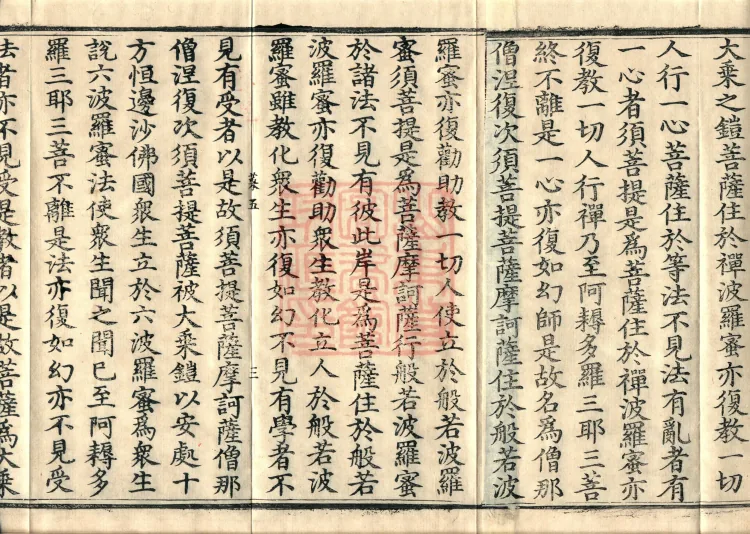 大乘之鎧菩薩住於禪波羅蜜亦復教一切
人行一心菩薩住於等法不見法有亂者有
一心者須菩提是為菩薩住於禪波羅蜜亦
復教一切人行禪乃至阿耨多羅三耶三菩
終不離是一心亦復如幻師是故名為僧那
僧涅復次須菩提菩薩摩訶薩住於般若波
羅蜜亦復勸助教一切人使立於般若波羅
蜜須菩提是為菩薩摩訶薩行般若波羅蜜
於諸法不見有彼此岸是為菩薩住於般若
波羅蜜亦復勸助眾生教化立人於般若波
羅蜜雖教化眾生亦復如幻不見有學者不
菜五 三
見有受者以是故須菩提菩薩摩訶薩僧那
僧涅復次須菩提菩薩被大乘鎧以安處十
方恒邊沙佛國眾生立於六波羅蜜為眾生
說六波羅蜜法使眾生聞之聞已至阿耨多
羅三耶三菩不離是法亦復如幻亦不見受
法者亦不見受是教者以是故菩薩為大乘